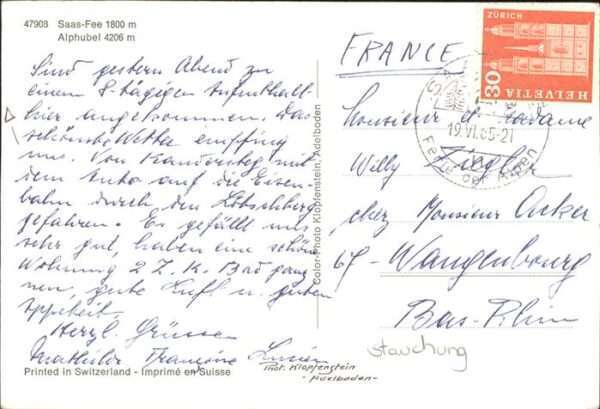 47908 Saas-Fee 1800 m
Alphubel 4206 m
Sind gestern Abend zu
einem 8-tägigen Aufenthalt
hier angekommen. Das
schönste Wetter empfing
uns. Von Kandersteg mit
dem Auto auf die Eisen-
bahn durch den Lötschberg
gefahren. Es gefällt uns
sehr gut, haben eine schöne
Wohnung 2 Z. K. Bad
gute Luft u. guten
Appetit.
Herzl. Grüsse
Mathilde Françoise Lucien
Printed in Switzerland - Imprimé en Suisse
Color-Photo Klopfenstein, Adelboden
Phot. Klopfenstein
- Adelboden -
FRANCE
ZÜRICH
80
HELVETIA
19.VI.65-21
Monsieur et Madame
Willy Ziegler
chez Monsieur Acker
67- Wangenbourg
Bas-Rhin
Stauchung